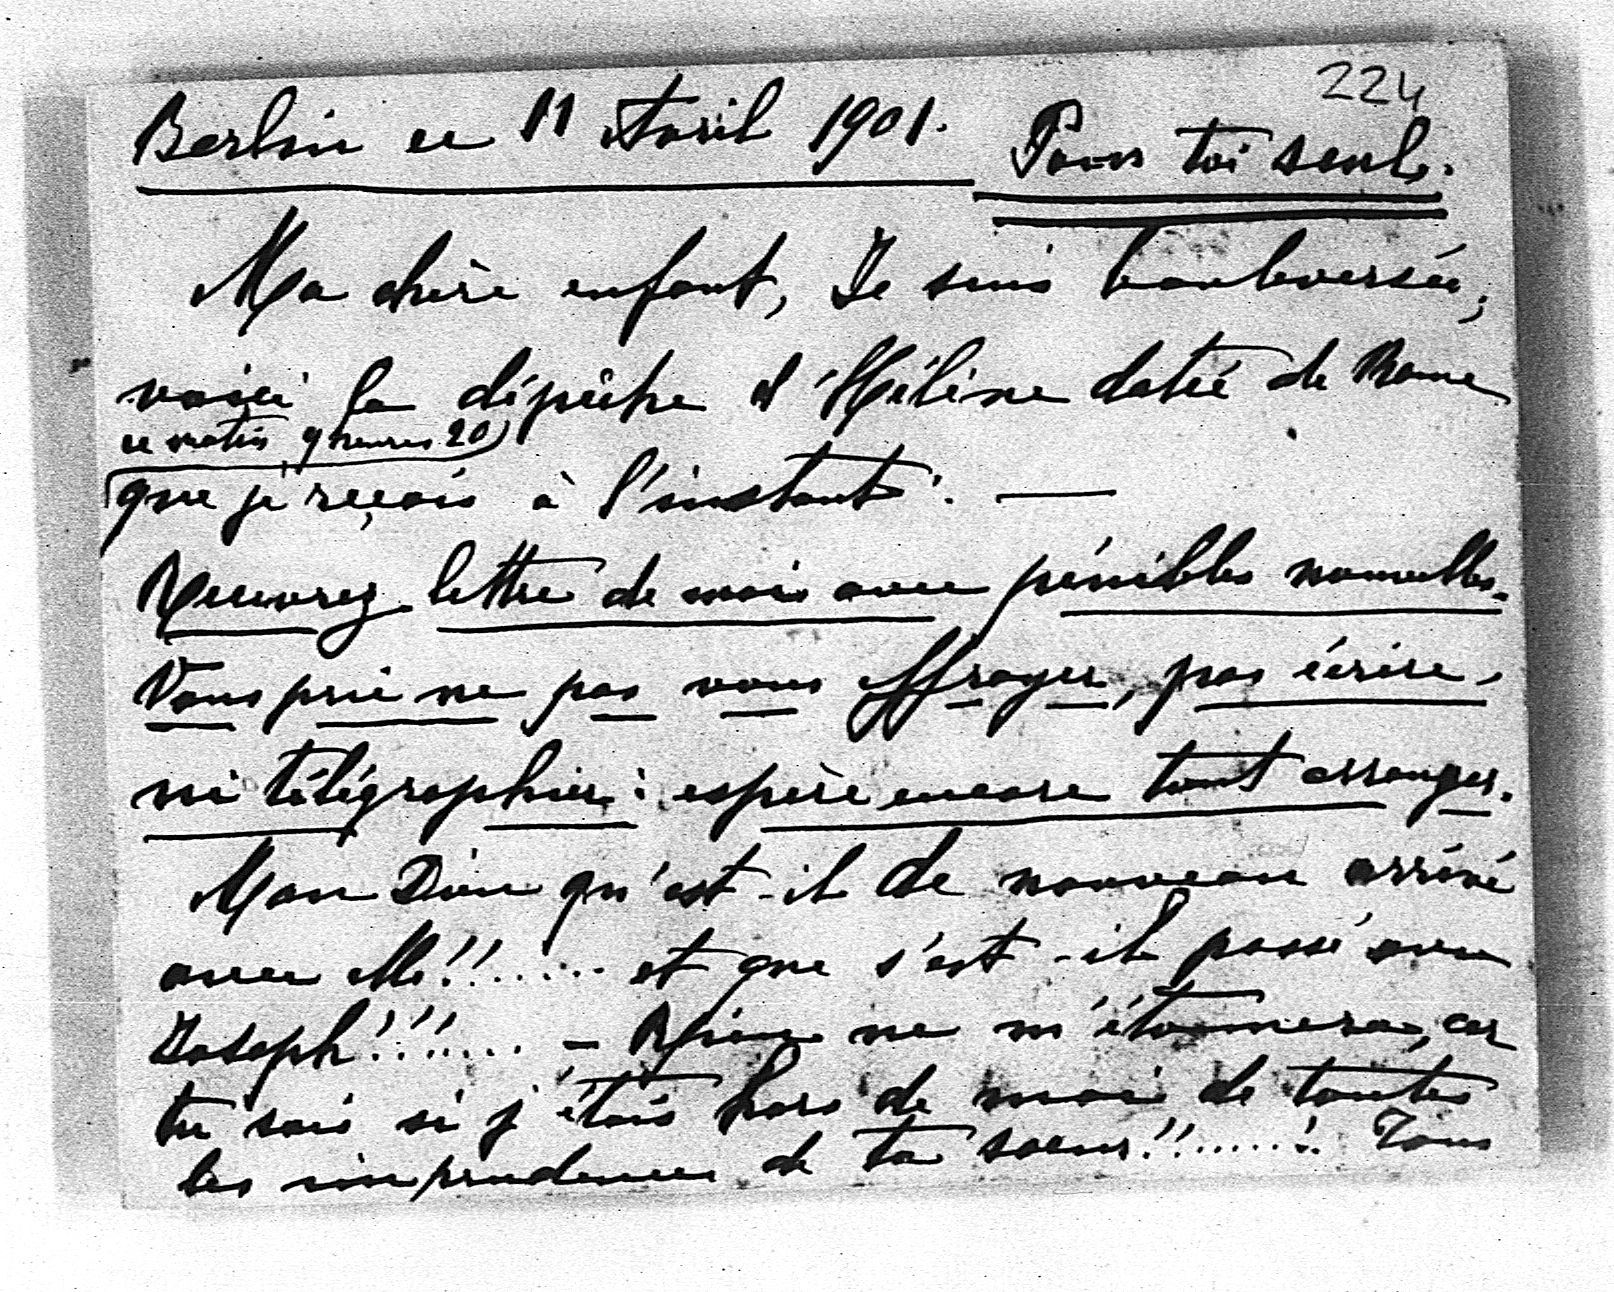 224
Berlin ce 11 Avril 1901. Pour toi seule.
Ma chère enfant, Je suis bouleversée,
voici la dépêche d'Hélène datée de Rome
ce matin 9 heures 20)
que je reçois à l'instant : —
Recevrez lettre de moi avec pénibles nouvelles.
Vous prie ne pas vous effrayer, pas écrire,
ni télégraphier : espère encore tout arranger.
Mon Dieu qu'est-il de nouveau arrivé
avec elle!!..... et que s'est-il passé avec
Joseph!!!..... – Rien ne m'étonnera, car
tu sais si j'étais hors de moi de toutes
les imprudences de ta soeur!!......! Tous